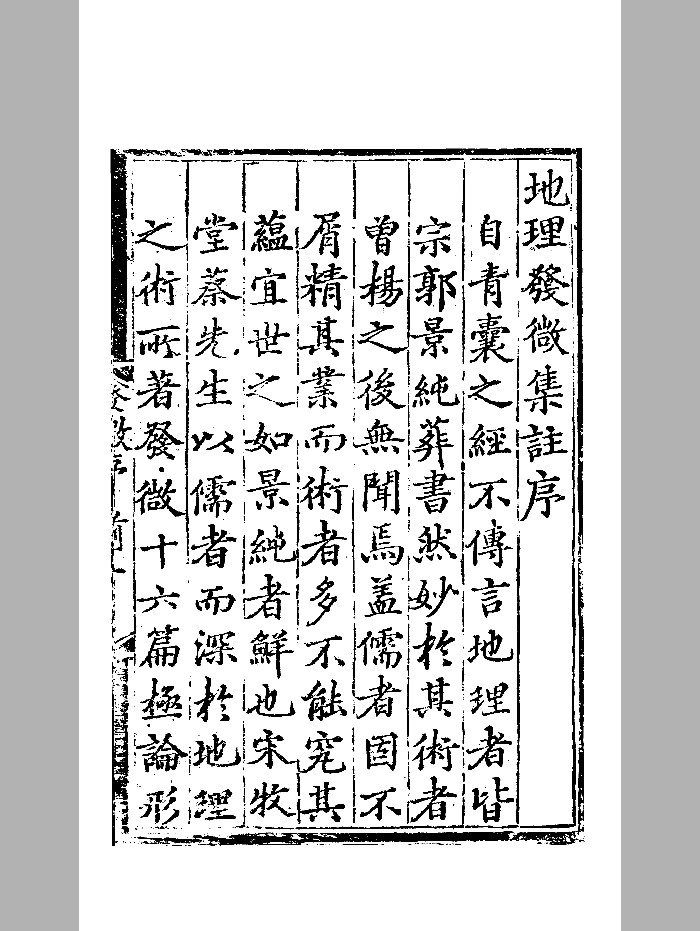 地理發微集註序
自青囊之經不傳言地理者皆
宗郭景純葬書然妙於其術者
曽楊之後無聞焉盖儒者固不
屑精其業而術者多不能究其
蘊宜世之如景純者鮮也宋牧
堂蔡先生以儒者而深於地理
之術所著發微十六篇極論形